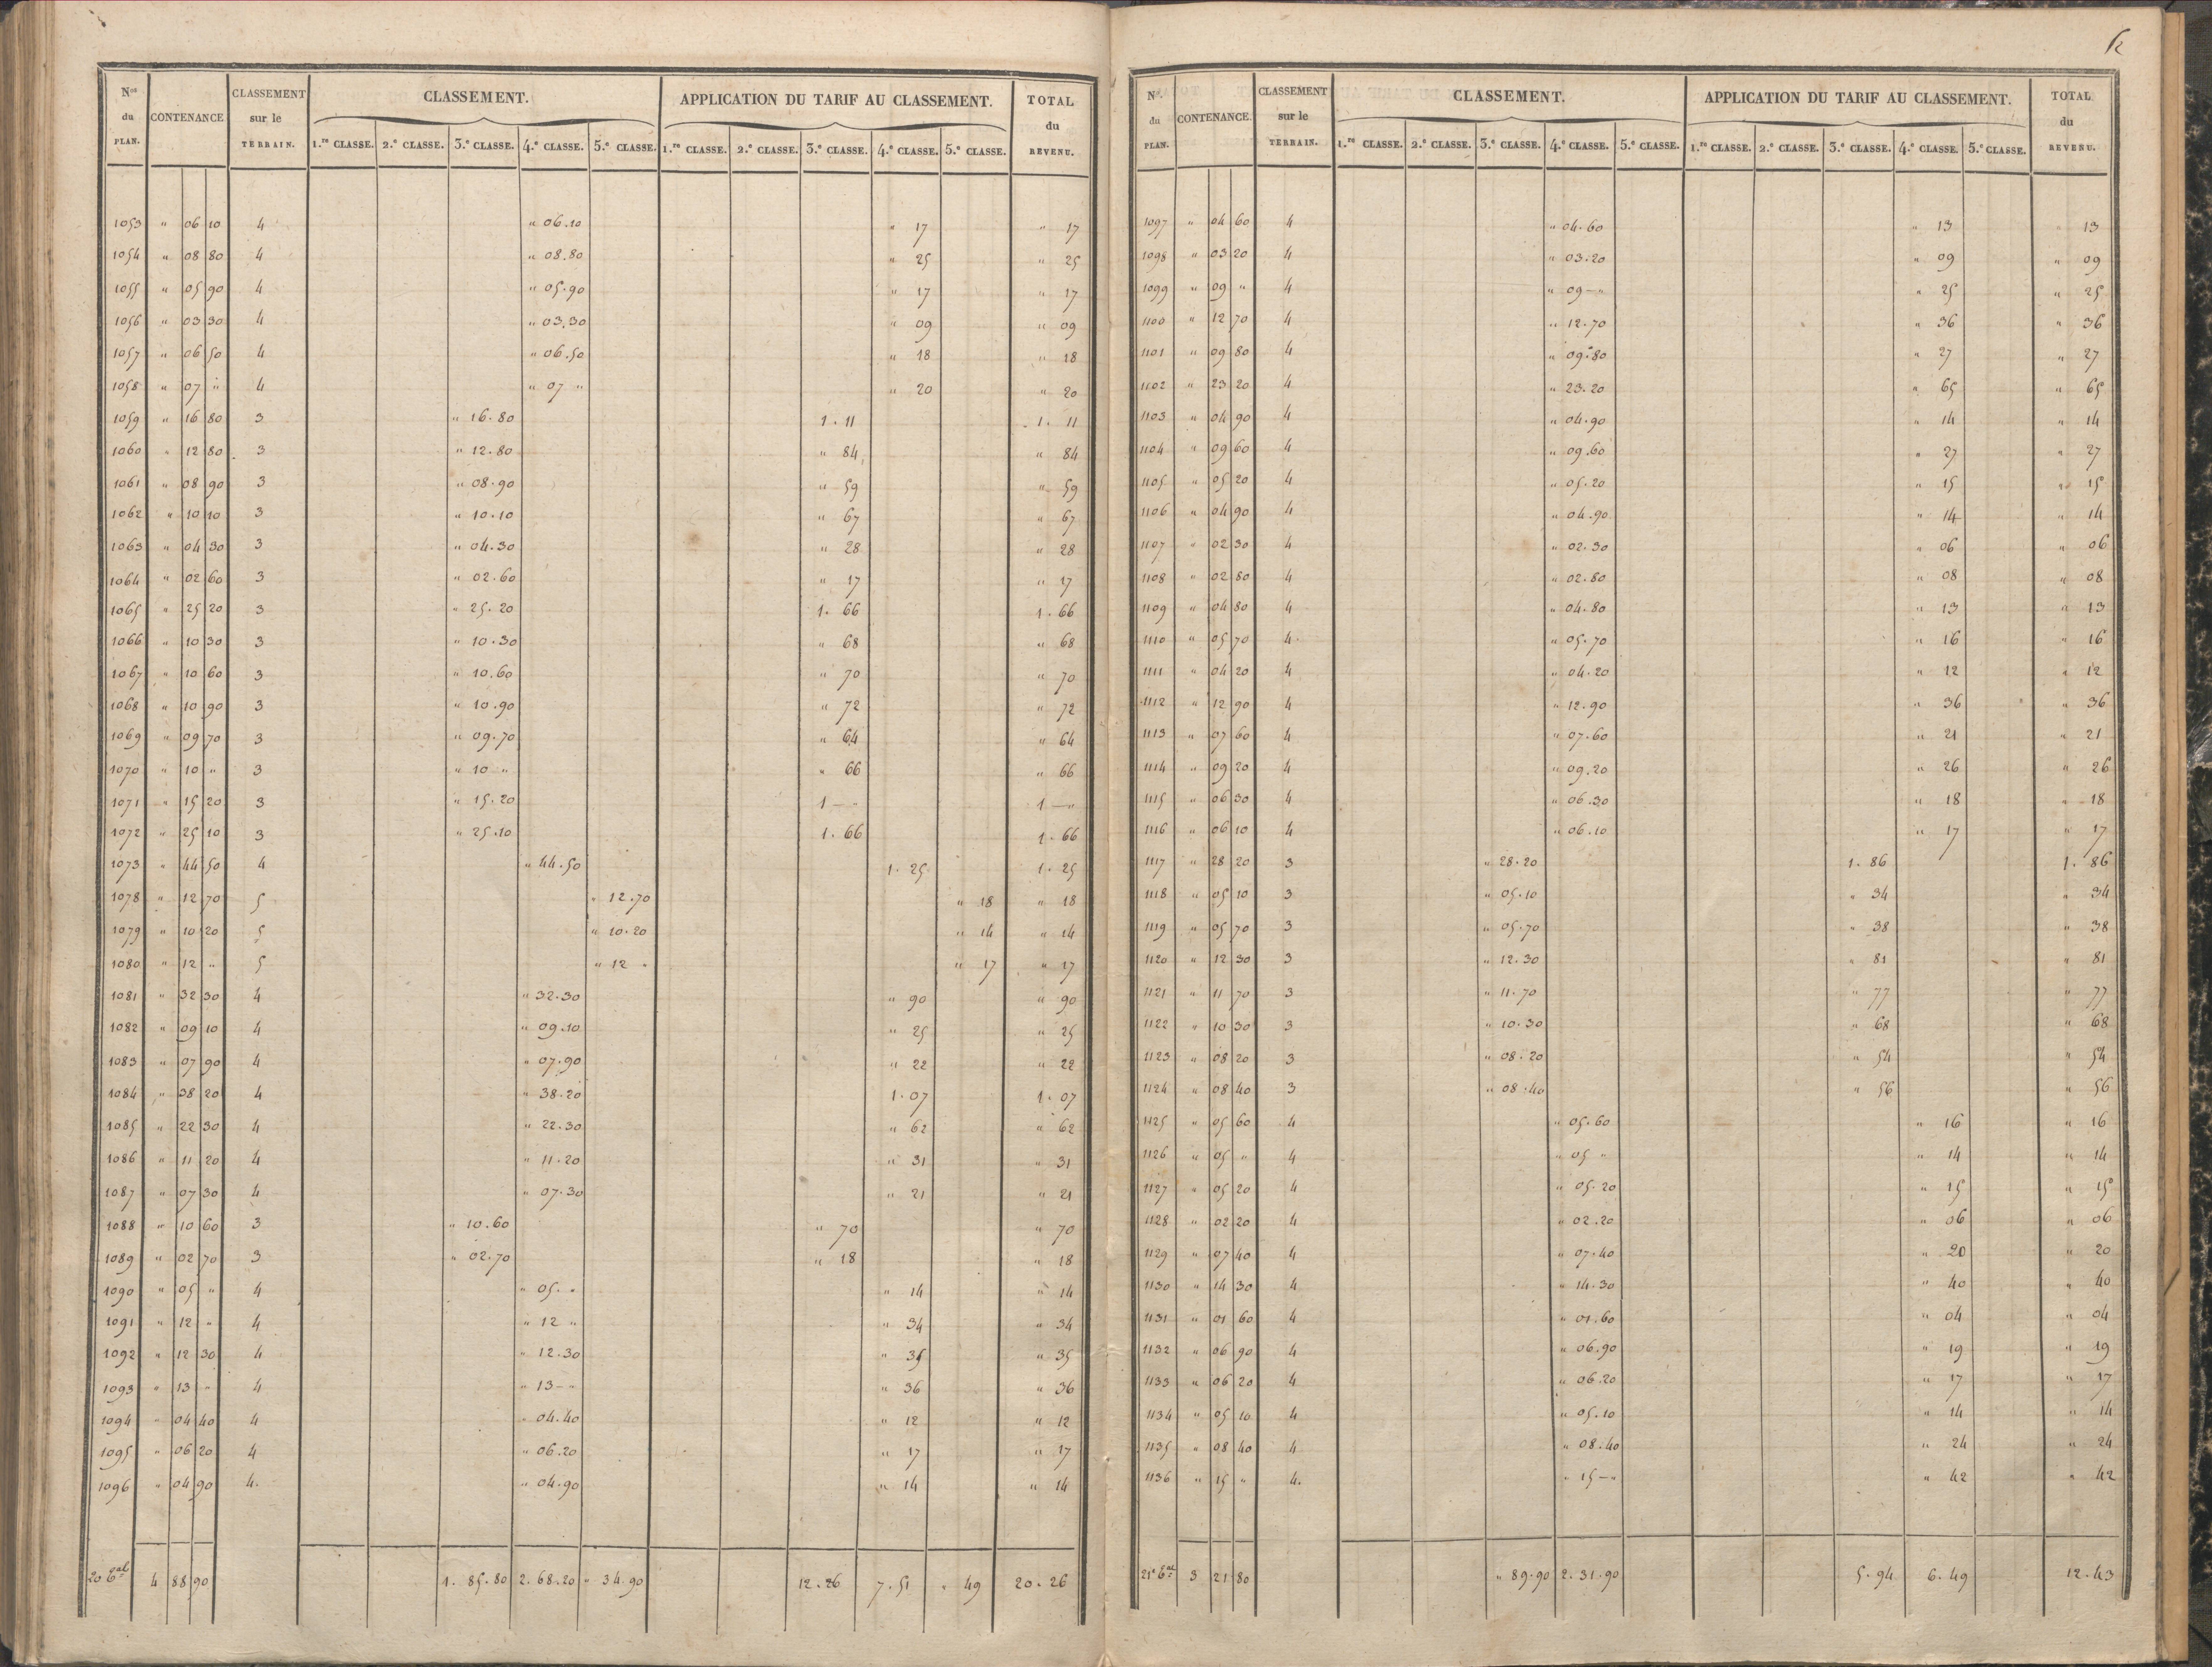 Nos du PLAN. CONTENANCE CLASSEMENT sur le TERRAIN. CLASSEMENT. APPLICATION DU TARIF AU CLASSEMENT. TOTAL du REVENU.
1.re CLASSE. 2.e CLASSE. 3.e CLASSE. 4.e CLASSE. 5.e CLASSE. 1.re CLASSE. 2.e CLASSE. 3.e CLASSE. 4.e CLASSE. 5.e CLASSE.
1053 " 06 10 4 " 06.10 " 17 " 17
1054 " 08 80 4 " 08.80 " 25 " 25
1055 " 05 90 4 " 05.90 " 17 " 17
1056 " 03 30 4 " 03.30 " 09 " 09
1057 " 06 50 4 " 06.50 " 18 " 18
1058 " 07 " 4 " 07 " " 20 " 20
1059 " 16 80 3 " 16.80 1.11 1.11
1060 " 12 80 3 " 12.80 " 84 " 84
1061 " 08 90 3 " 08.90 " 59 " 59
1062 " 10 10 3 " 10.10 " 67 " 67
1063 " 04 30 3 " 04.30 " 28 " 28
1064 " 02 60 3 " 02.60 " 17 " 17
1065 " 25 20 3 " 25.20 1.66 1.66
1066 " 10 30 3 " 10.30 " 68 " 68
1067 " 10 60 3 " 10.60 " 70 " 70
1068 " 10 90 3 " 10.90 " 72 " 72
1069 " 09 70 3 " 09.70 " 64 " 64
1070 " 10 " 3 " 10 " " 66 " 66
1071 " 15 20 3 " 15.20 1 — " 1 — "
1072 " 25 10 3 " 25.10 1.66 1.66
1073 " 44 50 4 " 44.50 1.25 1.25
1078 " 12 70 5 " 12.70 " 18 " 18
1079 " 10 20 5 " 10.20 " 14 " 14
1080 " 12 " 5 " 12 " " 17 " 17
1081 " 32 30 4 " 32.30 " 90 " 90
1082 " 09 10 4 " 09.10 " 25 " 25
1083 " 07 90 4 " 07.90 " 22 " 22
1084 " 38 20 4 " 38.20 1.07 1.07
1085 " 22 30 4 " 22.30 " 62 " 62
1086 " 11 20 4 " 11.20 " 31 " 31
1087 " 07 30 4 " 07.30 " 21 " 21
1088 " 10 60 3 " 10.60 " 70 " 70
1089 " 02 70 3 " 02.70 " 18 " 18
1090 " 05 " 4 " 05. " " 14 " 14
1091 " 12 " 4 " 12 " " 34 " 34
1092 " 12 30 4 " 12.30 " 35 " 35
1093 " 13 " 4 " 13 — " " 36 " 36
1094 " 04 40 4 " 04.40 " 12 " 12
1095 " 06 20 4 " 06.20 " 17 " 17
1096 " 04 90 4. " 04.90 " 14 " 14
4 88 90 1.85.80 2.68.20 " 34.90 12.26 7.51 " 49 20.26
Nos du PLAN. CONTENANCE. CLASSEMENT sur le TERRAIN. CLASSEMENT. APPLICATION DU TARIF AU CLASSEMENT. TOTAL du REVENU.
1.re CLASSE. 2.e CLASSE. 3.e CLASSE. 4.e CLASSE. 5.e CLASSE. 1.re CLASSE. 2.e CLASSE. 3.e CLASSE. 4.e CLASSE. 5.e CLASSE.
1097 " 04 60 4 " 04.60 " 13 " 13
1098 " 03 20 4 " 03.20 " 09 " 09
1099 " 09 " 4 " 09 — " " 25 " 25
1100 " 12 70 4 " 12.70 " 36 " 36
1101 " 09 80 4 " 09.80 " 27 " 27
1102 " 23 20 4 " 23.20 " 65 " 65
1103 " 04 90 4 " 04.90 " 14 " 14
1104 " 09 60 4 " 09.60 " 27 " 27
1105 " 05 20 4 " 05.20 " 15 " 15
1106 " 04 90 4 " 04.90 " 14 " 14
1107 " 02 30 4 " 02.30 " 06 " 06
1108 " 02 80 4 " 02.80 " 08 " 08
1109 " 04 80 4 " 04.80 " 13 " 13
1110 " 05 70 4 " 05.70 " 16 " 16
1111 " 04 20 4 " 04.20 " 12 " 12
1112 " 12 90 4 " 12.90 " 36 " 36
1113 " 07 60 4 " 07.60 " 21 " 21
1114 " 09 20 4 " 09.20 " 26 " 26
1115 " 06 30 4 " 06.30 " 18 " 18
1116 " 06 10 4 " 06.10 " 17 " 17
1117 " 28 20 3 " 28.20 1.86 1.86
1118 " 05 10 3 " 05.10 " 34 " 34
1119 " 05 70 3 " 05.70 " 38 " 38
1120 " 12 30 3 " 12.30 " 81 " 81
1121 " 11 70 3 " 11.70 " 77 " 77
1122 " 10 30 3 " 10.30 " 68 " 68
1123 " 08 20 3 " 08.20 " 54 " 54
1124 " 08 40 3 " 08.40 " 56 " 56
1125 " 05 60 4 " 05.60 " 16 " 16
1126 " 05 " 4 " 05 " " 14 " 14
1127 " 05 20 4 " 05.20 " 15 " 15
1128 " 02 20 4 " 02.20 " 06 " 06
1129 " 07 40 4 " 07.40 " 20 " 20
1130 " 14 30 4 " 14.30 " 40 " 40
1131 " 01 60 4 " 01.60 " 04 " 04
1132 " 06 90 4 " 06.90 " 19 " 19
1133 " 06 20 4 " 06.20 " 17 " 17
1134 " 05 10 4 " 05.10 " 14 " 14
1135 " 08 40 4 " 08.40 " 24 " 24
1136 " 15 " 4. " 15 — " " 42 " 42
3 21 80 " 89.90 2.31.90 5.94 6.49 12.43